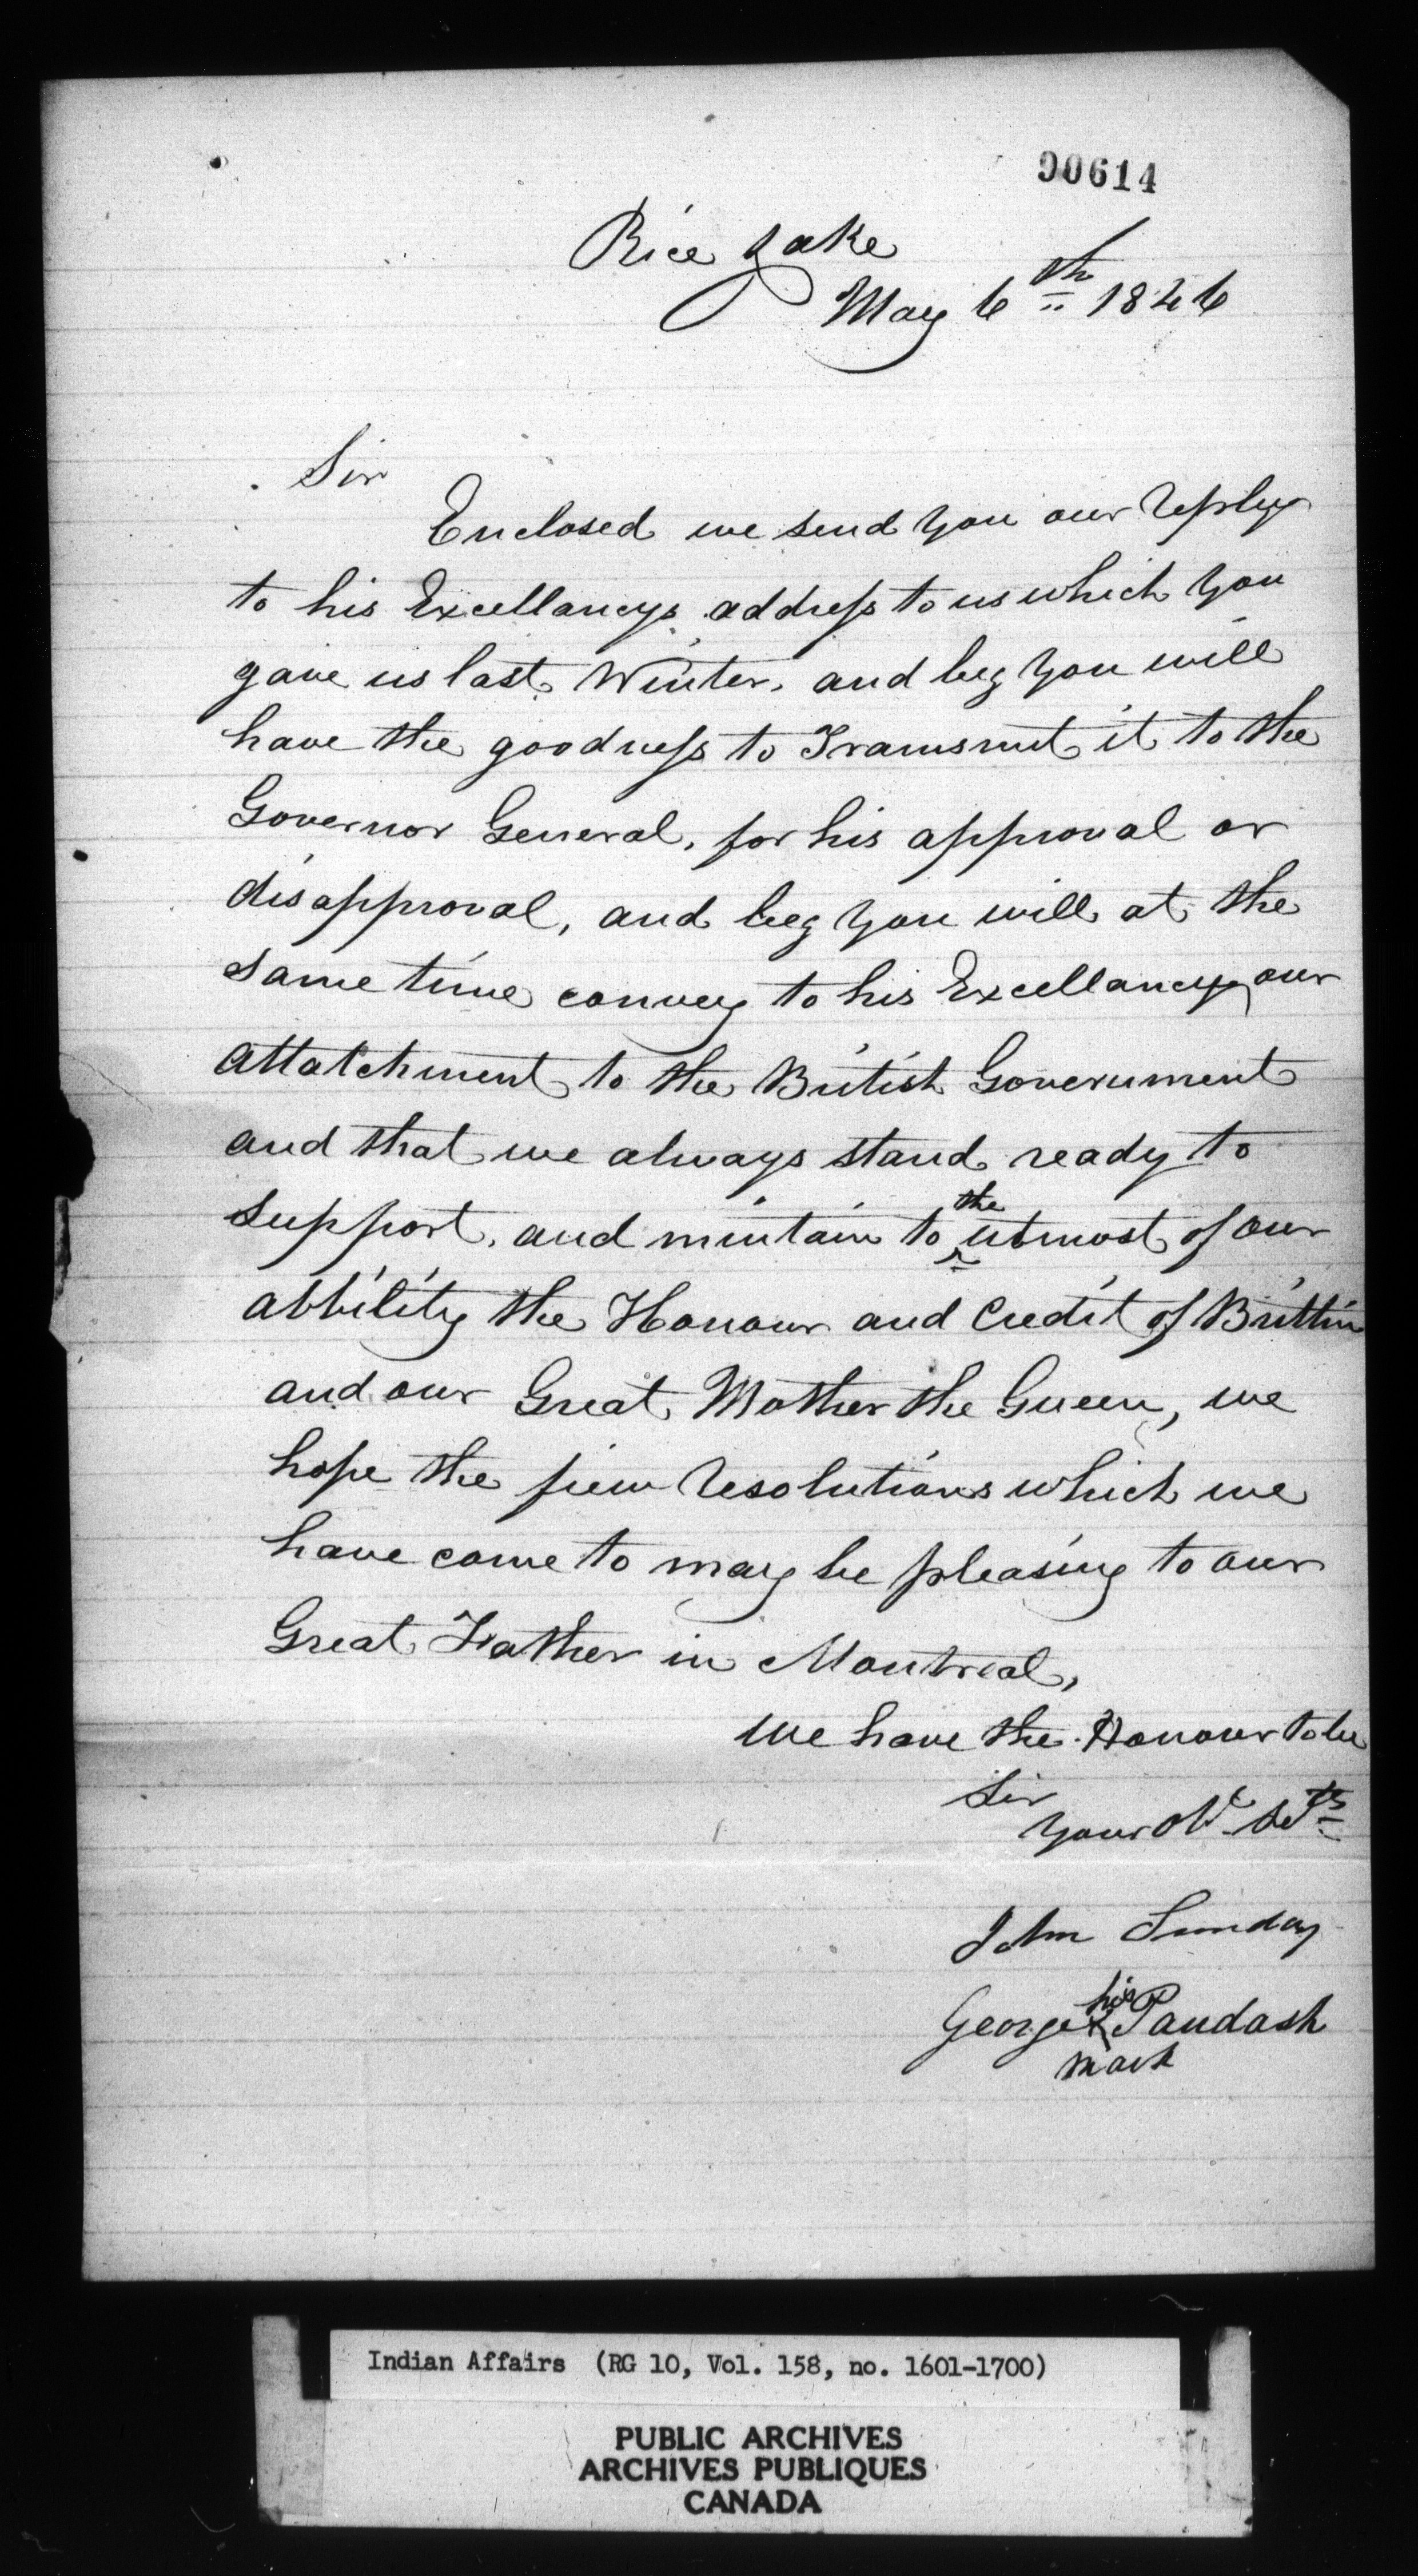 90614
Rice Lake
May 6th 1846
Sir
Enclosed we send you our reply
to his Excellancys address to us which you
gave us last Winter, and beg you will
have the goodness to Transmit it to the
Governor General, for his approval or
disapproval, and beg you will at the
same time convey to his Excellancy our
attatchment to the British Government
and that we always stand ready to
support, and mintain to the utmost of our
abbility the Honour and Credit of Brittin
and our Great Mother the Queen, we
hope the fiew resolutions which we
have come to may be pleasing to our
Great Father in Montreal,
We have the Honour to be
Sir
your Obt Sets
John Sunday
George his x Paudash
mark
Indian Affairs (RG 10, Vol. 158, no. 1601-1700)
PUBLIC ARCHIVES
ARCHIVES PUBLIQUES
CANADA